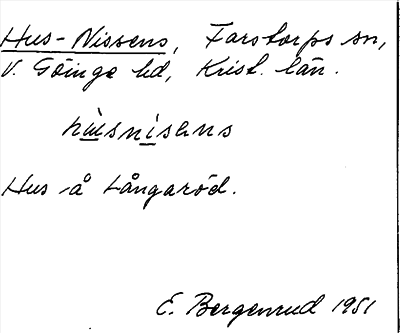 Hus-Nissens, Farstorps sn,
V. Göinge hd, Krist. län.
hùsnisens
Hus å Långaröd.
E. Bergenrud 1951